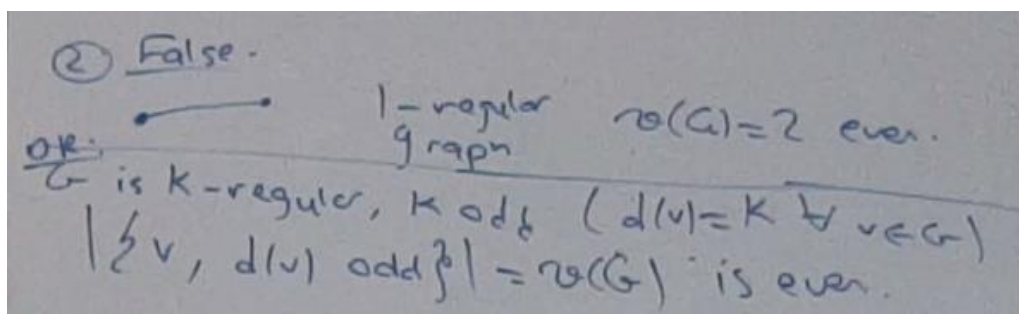 ② False.
1-regular graph v(G)=2 even.
OR:
G is K-regular, K odd (d(v)=K ∀ v∈G)
|{v, d(v) odd}| = v(G) is even.